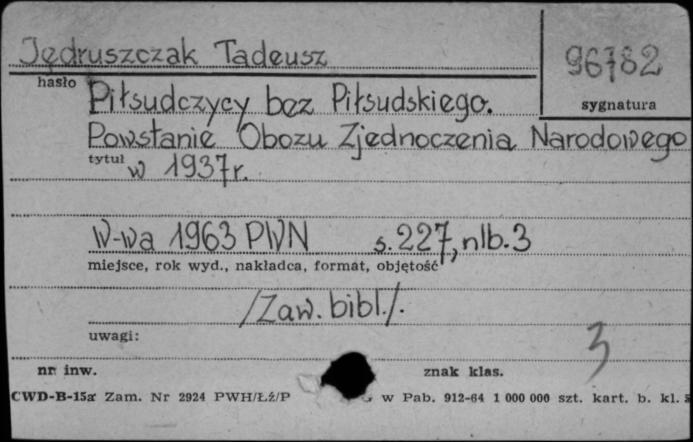 Jędruszczak Tadeusz
96782
hasło
sygnatura
Piłsudczycy bez Piłsudskiego.
Powstanie Obozu Zjednoczenia Narodowego
tytuł
w 1937r.
W-wa 1963 PWN s. 227, nlb. 3
miejsce, rok wyd., nakładca, format, objętość
/Zaw. bibl./.
uwagi:
3
nr inw.
znak klas.
CWD-B-15a Zam. Nr 2924 PWH/Łź/P w Pab. 912-64 1 000 000 szt. kart. b. kl.